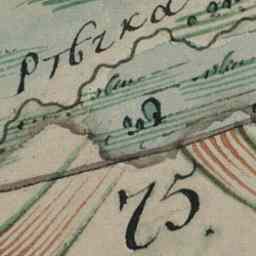 рѣчка
75.